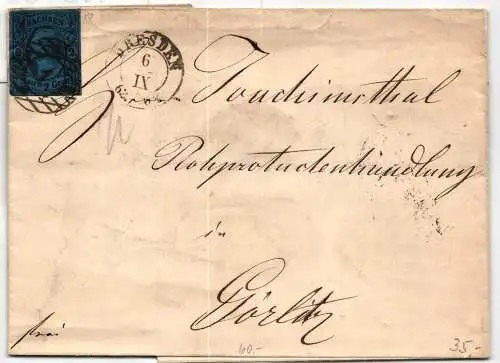 SACHSEN
DRESDEN
6
IX
Joachimsthal
Rohproductenhandlung
in
Görlitz
frei
60,-
35,-